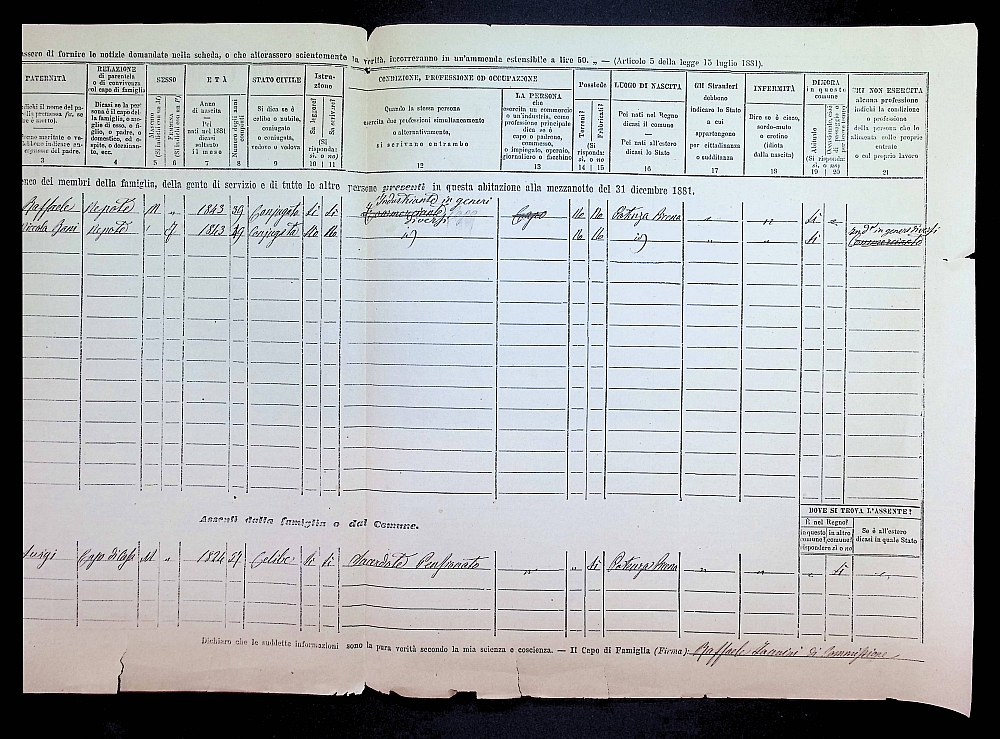 ssero di fornire le notizie domandate nella scheda, o che alterassero scientemente la verità, incorreranno in un'ammenda estensibile a lire 50. „ — (Articolo 5 della legge 15 luglio 1881).
PATERNITÀ
RELAZIONE
di parentela
o di convivenza
col capo di famiglia
SESSO
ETÀ
STATO CIVILE
Istruzione
CONDIZIONE, PROFESSIONE OD OCCUPAZIONE
Possiede
LUOGO DI NASCITA
Gli Stranieri
debbono
indicare lo Stato
a cui
appartengono
per cittadinanza
o sudditanza
INFERMITÀ
DIMORA
in questo
comune
CHI NON ESERCITA
alcuna professione
indichi la condizione
o professione
della persona che lo
alimenta colle proprie
entrate
o col proprio lavoro
Dicasi se la persona
è il capo della
famiglia, o moglie
di esso, o figlio,
o padre, o
domestico, od ospite,
o dozzinante,
ecc.
Maschio
(Si indichi con un M)
Femmina
(Si indichi con un F)
Anno
di nascita
—
Pei
nati nel 1881
dicasi
soltanto
il mese
Numero degli anni
compiuti
Si dica se è
celibe o nubile,
coniugato
o coniugata,
vedovo o vedova
Sa leggere?
Sa scrivere?
(Si
risponda:
si, o no)
Quando la stessa persona
esercita due professioni simultaneamente
o alternativamente,
si scrivano entrambe
LA PERSONA
che
esercita un commercio
o un'industria, come
professione principale
dica se è
capo o padrone,
commesso,
o impiegato, operaio,
giornaliero o facchino
Terreni?
Fabbricati?
(Si
risponda:
si, o no)
Pei nati nel Regno
dicasi il comune
—
Pei nati all'estero
dicasi lo Stato
Dire se è cieco,
sordo-muto
o cretino
(idiota
dalla nascita)
Abituale
(Si risponda:
si, o no)
3 4 5 6 7 8 9 10 11 12 13 14 15 16 17 18 19 20 21
nco dei membri della famiglia, della gente di servizio e di tutte le altre persone presenti in questa abitazione alla mezzanotte del 31 dicembre 1881.
Industriante in generi
diversi
Raffaele Nepote M „ 1843 39 Conjugato si si Capo No No Potenza „ „ si
Nepote 1843 39 Conjugata No No id No No id „ „ si
in generi diversi
Commerciante
Assenti dalla famiglia o dal Comune.
DOVE SI TROVA L'ASSENTE?
È nel Regno?
in questo
comune?
in altro
comune?
risponder si o no
Se è all'estero
dicasi in quale Stato
Luigi Capo di Casa M „ 1824 57 Celibe si si Sacerdote Pensionato „ „ si Potenza „ „ „ si „
Dichiaro che le suddette informazioni sono la pura verità secondo la mia scienza e coscienza. — Il Capo di Famiglia (Firma): Raffaele di Commissione